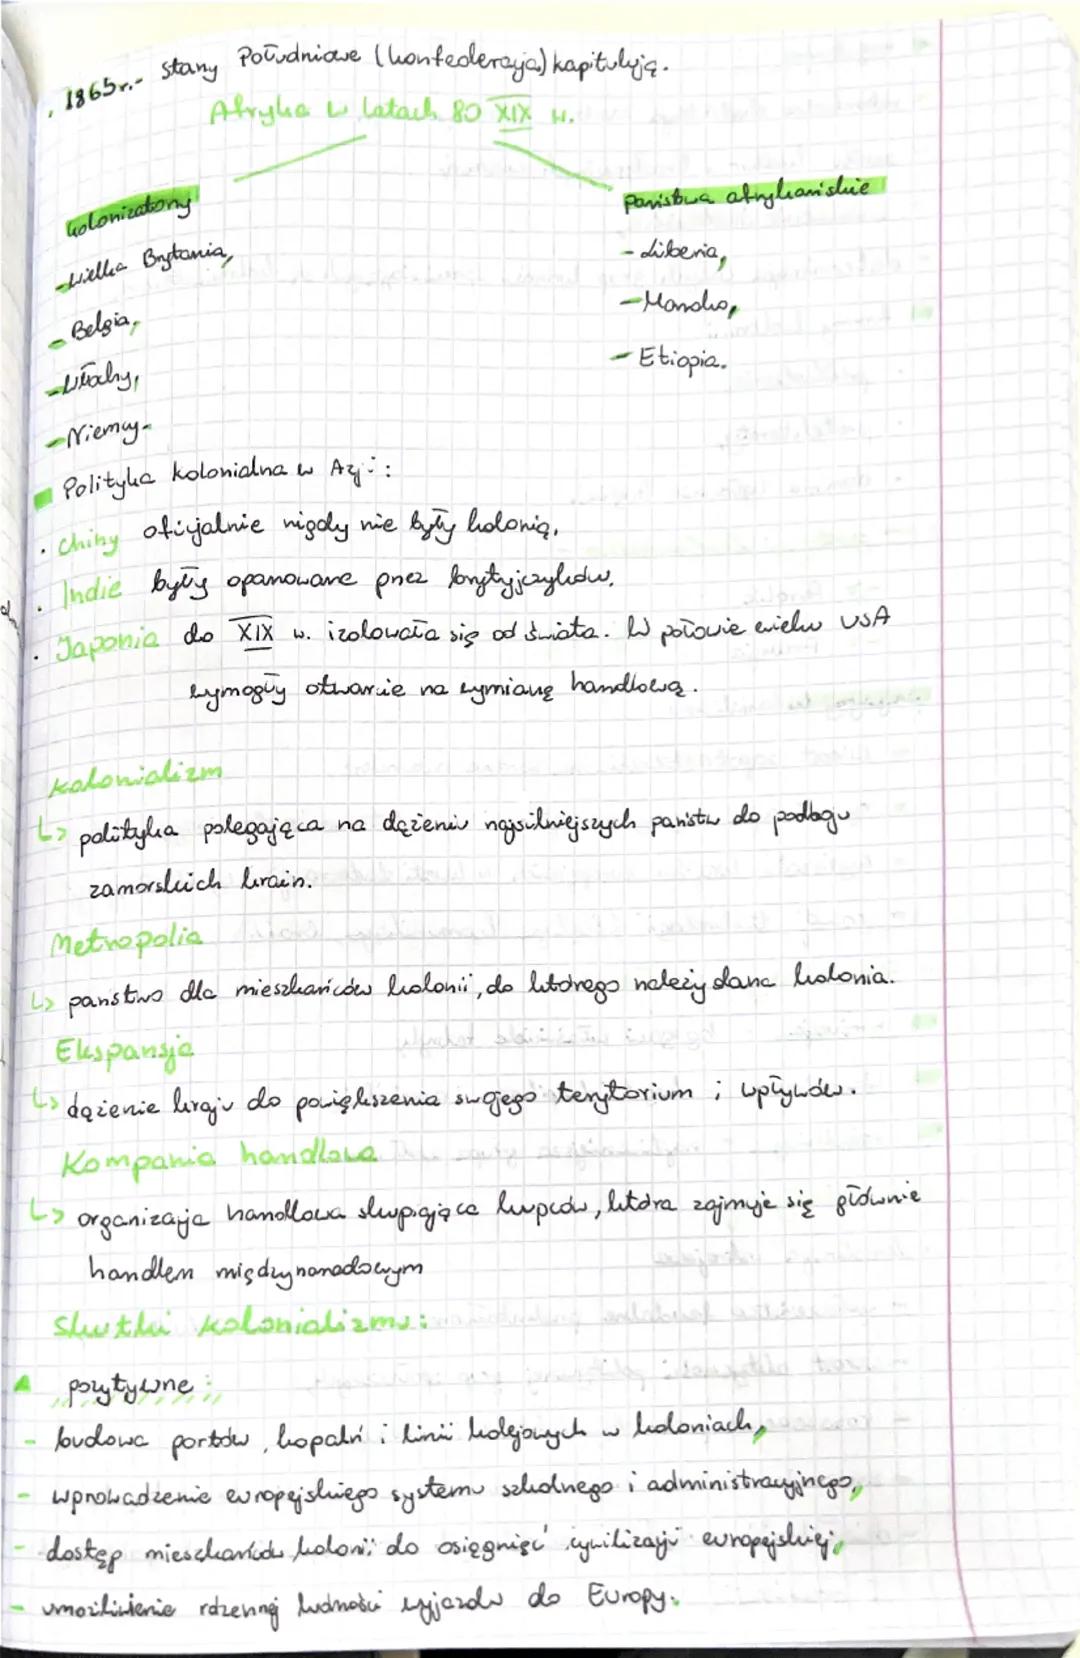 1865r.- stany Południowe (konfederacja) kapitulują.
Afryka w latach 80 XIX w.
kolonizatorzy
- Wielka Brytania,
- Belgia,
- Włochy,
- Niemcy.
państwa afrykańskie
- Liberia,
- Maroko,
- Etiopia.
Polityka kolonialna w Azji:
· Chiny oficjalnie nigdy nie były kolonią,
· Indie były opanowane przez brytyjczyków,
· Japonia do XIX w. izolowała się od świata. W połowie wieku USA
wymogły otwarcie na wymianę handlową.
kolonializm
↳ polityka polegająca na dążeniu najsilniejszych państw do podboju
zamorskich krain.
Metropolia
↳ państwo dla mieszkańców kolonii, do którego należy dana kolonia.
Ekspansja
↳ dążenie kraju do powiększenia swojego terytorium i wpływów.
Kompania handlowa
↳ organizacja handlowa skupiająca kupców, która zajmuje się głównie
handlem międzynarodowym
Skutki kolonializmu:
pozytywne:
- budowa portów, kopalń i linii kolejowych w koloniach,
- wprowadzenie europejskiego systemu szkolnego i administracyjnego,
- dostęp mieszkańców kolonii do osiągnięć cywilizacji europejskiej,
- umożliwienie rdzennej ludności wyjazdu do Europy.